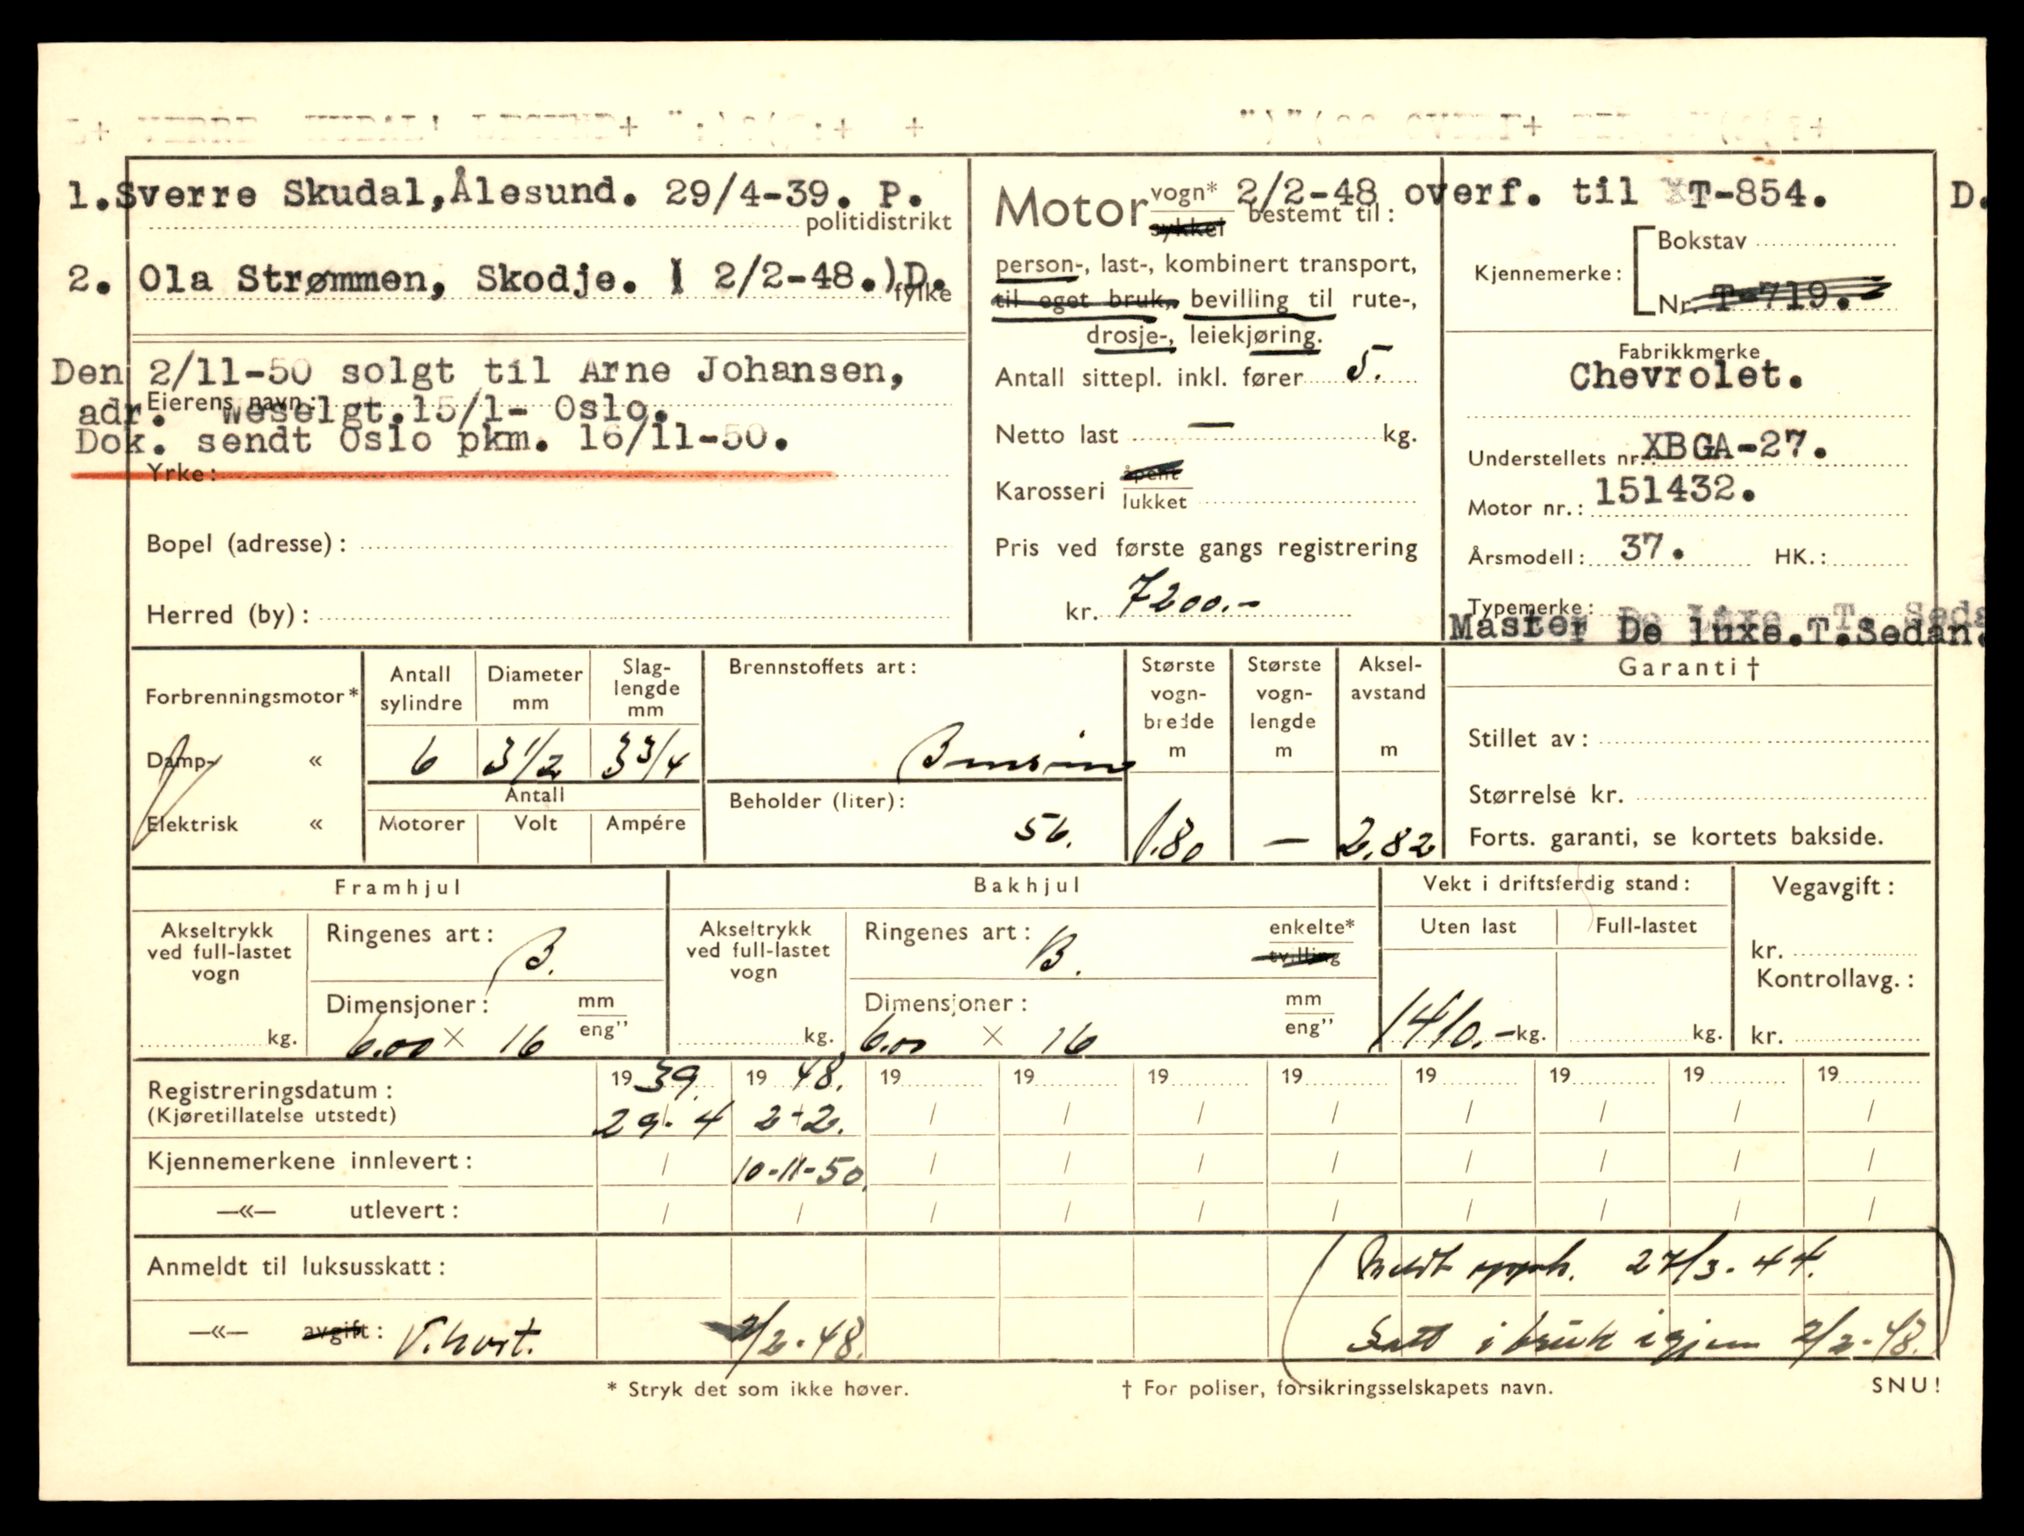 1. Sverre Skudal, Ålesund. 29/4-39. P.
politidistrikt
2. Ola Strømmen, Skodje. ( 2/2-48.) D.
fylke
Den 2/11-50 solgt til Arne Johansen,
Eierens navn:
adr. Weselgt.15/1- Oslo.
Dok. sendt Oslo pkm. 16/11-50.
Yrke:
Bopel (adresse):
Herred (by):
Motor vogn* sykkel bestemt til:
2/2-48 overf. til T-854. D.
person-, last-, kombinert transport,
til eget bruk, bevilling til rute-,
drosje-, leiekjøring.
Antall sittepl. inkl. fører 5.
Netto last — kg.
Karosseri åpent lukket
Pris ved første gangs registrering
kr. 7200.-
Bokstav
Kjennemerke:
Nr. T-719.
Fabrikkmerke
Chevrolet.
Understellets nr.: XBGA-27.
Motor nr.: 151432.
Årsmodell: 37. HK.:
Typemerke:
Master De luxe.T.Sedan.
Forbrenningsmotor*
Damp- «
Elektrisk «
Antall sylindre
6
Diameter mm
3 1/2
Slag-lengde mm
3 3/4
Antall
Motorer Volt Ampére
Brennstoffets art:
Bensin
Beholder (liter):
56.
Største vogn-bredde m
1.80
Største vogn-lengde m
—
Aksel-avstand m
2.82
Garanti†
Stillet av:
Størrelse kr.
Forts. garanti, se kortets bakside.
Framhjul
Akseltrykk ved full-lastet vogn
kg.
Ringenes art: B.
Dimensjoner: mm eng”
6.00 × 16
Bakhjul
Akseltrykk ved full-lastet vogn
kg.
Ringenes art: B.
enkelte* tvilling
Dimensjoner: mm eng”
6.00 × 16
Vekt i driftsferdig stand:
Uten last Full-lastet
1410.- kg. kg.
Vegavgift:
kr.
Kontrollavg.:
kr.
Registreringsdatum: 1939. 1948. 19 19 19 19 19 19 19 19
(Kjøretillatelse utstedt) 29.4 2-2. / / / / / / / /
Kjennemerkene innlevert: / 10-11-50. / / / / / / / /
—«— utlevert: / / / / / / / / / /
Anmeldt til luksusskatt: Meldt opph. 27/3-44.
—«— avgift: V.hort. 2/2-48. Satt i bruk igjen 2/2-48.
* Stryk det som ikke høver. † For poliser, forsikringsselskapets navn. SNU!